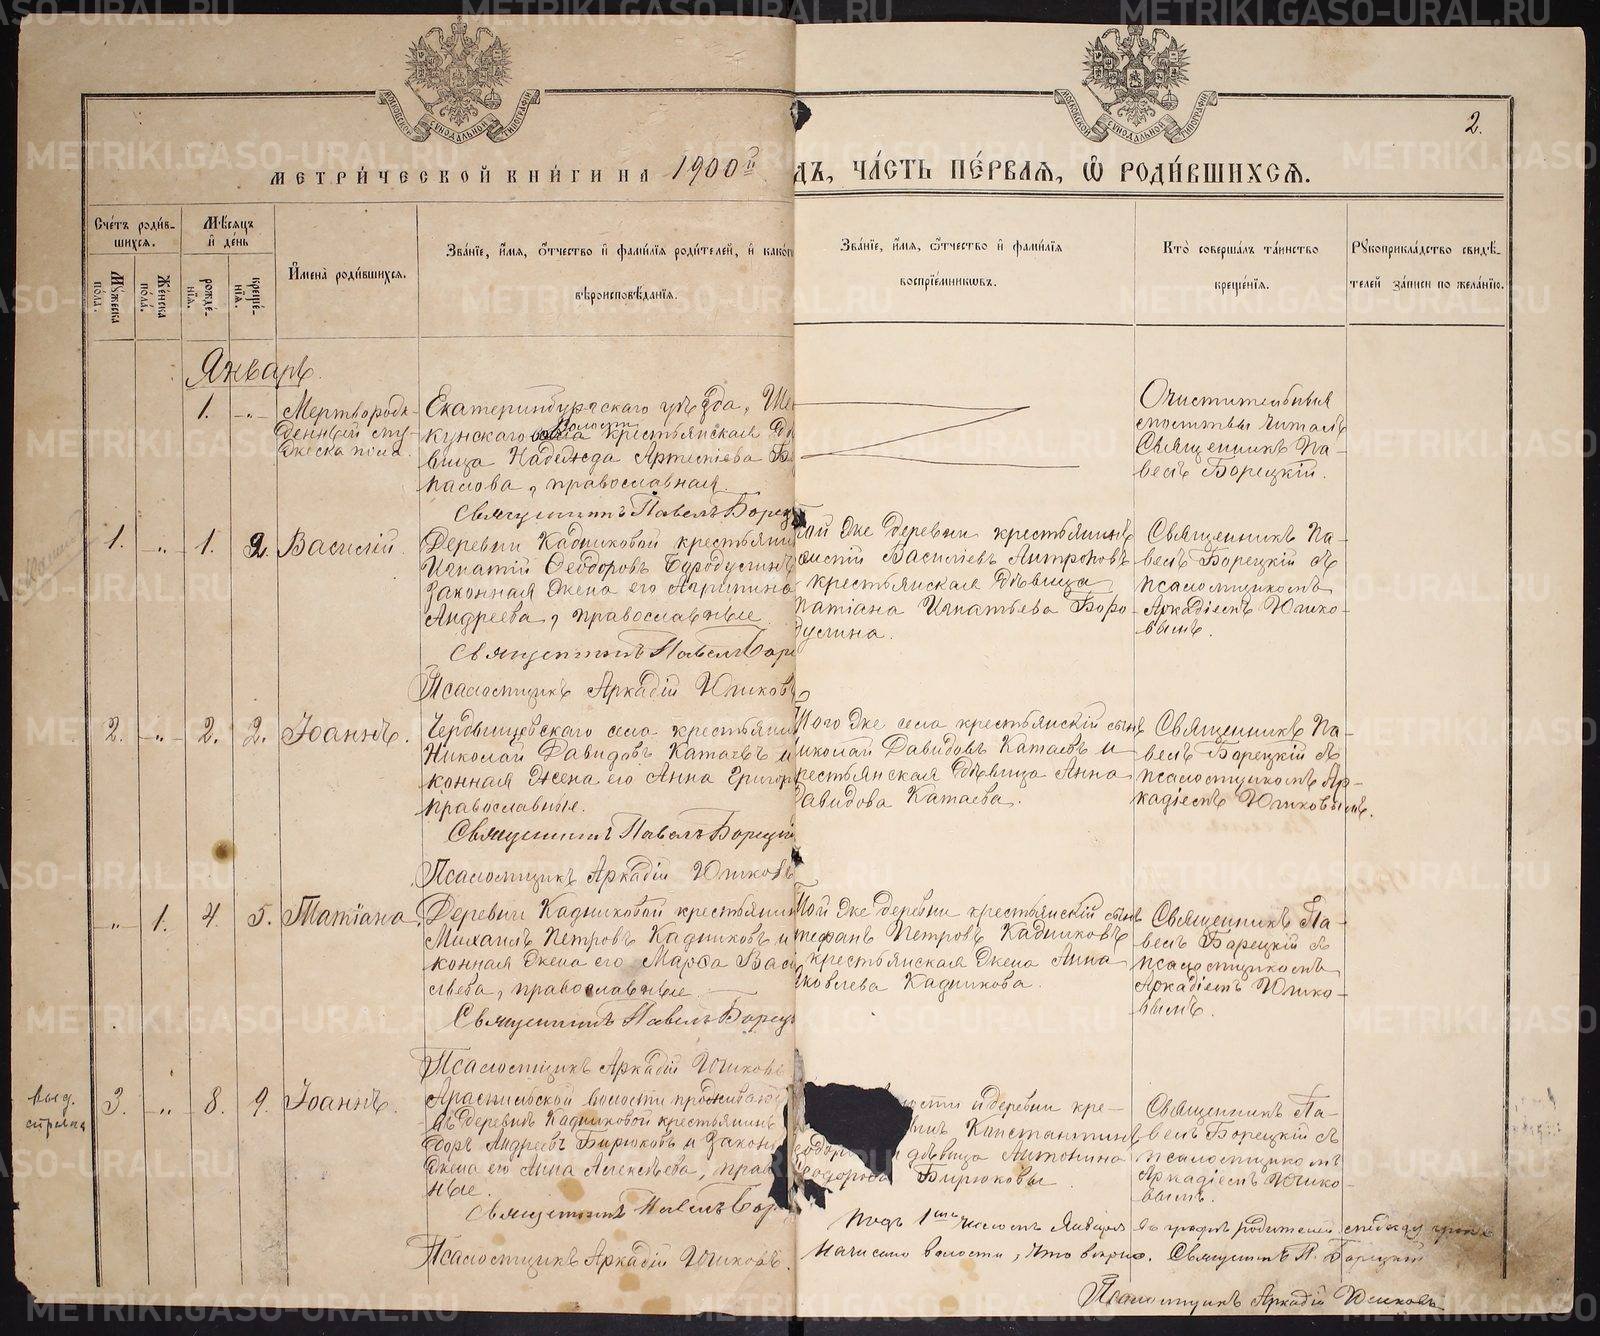 2.
МЕТРИ́ЧЕСКОЙ КНИ́ГИ НА 1900й
ДЪ, ЧА́СТЬ ПЕ́РВАѦ, Ѽ РОДИ́ВШИХСѦ.
Сче́тъ роди́в-
шихся.
Мѣсяцъ
и҆ де́нь
Му́жеска
по́ла.
Же́нска
по́ла.
рожде́-
нїя.
креще́-
нїя.
И҆мена̀ роди́вшихся.
Зва́нїе, и҆́мя, ѻ҆́тчество и҆ фами́лїя роди́телей, и҆ како́г
вѣроисповѣ́данїя.
Зва́нїе, и҆́мя, ѻ҆́тчество и҆ фами́лїя
воспрїе́мниковъ.
Кто̀ соверша́лъ та́инство
креще́нїя.
Рꙋкоприкла́дство свидѣ́-
телей за́писи по жела́нїю.
Январь.
1. -„-
Мертворож-
денный му-
жеска пола.
Екатеринбургскаго уѣзда, Ше
кунскаго волости крестьянская дѣ
вица Надежда Артеміева
палова, православная.
Священникъ Павелъ Борец
Очистительныя
молитвы читалъ
Священникъ Па-
велъ Борецкій.
1. -„- 1. 2. Василій.
Деревни Кадниковой крестьянин
Игнатій Ѳеодоровъ Бородулинъ
законная жена его Агрипина
Андреева, православные.
Священникъ Павелъ Боре
Псаломщикъ Аркадій Юшковъ
той же деревни крестьянинъ
Василіевъ Антроповъ
крестьянская дѣвица
Татіана Игнатьева Боро-
дулина.
Священникъ Па-
велъ Борецкій съ
псаломщикомъ
Аркадіемъ Юшко-
вымъ.
2. -„- 2. 2. Іоаннъ.
села крестьянин
Николай Давидовъ Катаевъ и
конная жена его Анна Григор
православные.
Священникъ Павелъ Борецкі
Псаломщикъ Аркадій Юшковъ
Того же села крестьянскій сынъ
иколай Давидовъ Катаевъ и
рестьянская дѣвица Анна
Давидова Катаева.
Священникъ Па-
велъ Борецкій съ
псаломщикомъ Ар-
кадіемъ Юшковымъ.
-„- 1. 4. 5. Татіана.
Деревни Кадниковой крестьянин
Михаилъ Петровъ Кадниковъ и
конная жена его Марѳа Васи
льева, православные.
Священникъ Павелъ Борец
Псаломщикъ Аркадій Юшковъ
Той же деревни крестьянскій сынъ
тефанъ Петровъ Кадниковъ
крестьянская жена Анна
Яковлева Кадникова.
Священникъ Па-
велъ Борецкій съ
псаломщикомъ
Аркадіемъ Юшко-
вымъ.
3. -„- 8. 9. Іоаннъ.
волости проживаю
въ деревнѣ Кадниковой крестьянинъ
доръ Андреевъ Бирюковъ и законн
жена его Анна Алексѣева, прав
ные.
Священникъ Павелъ Бор
Псаломщикъ Аркадій Юшковъ.
и деревни кре-
Константинъ
дѣвица Антонина
Бирюковы.
Священникъ Па-
велъ Борецкій съ
псаломщикомъ
Аркадіемъ Юшко-
вымъ.
Подъ 1мъ числомъ Января въ графѣ родителей
написано волости, что вѣрно. Священникъ П. Борецкій
Псаломщикъ Аркадій Юшковъ
METRIKI.GASO-URAL.RU